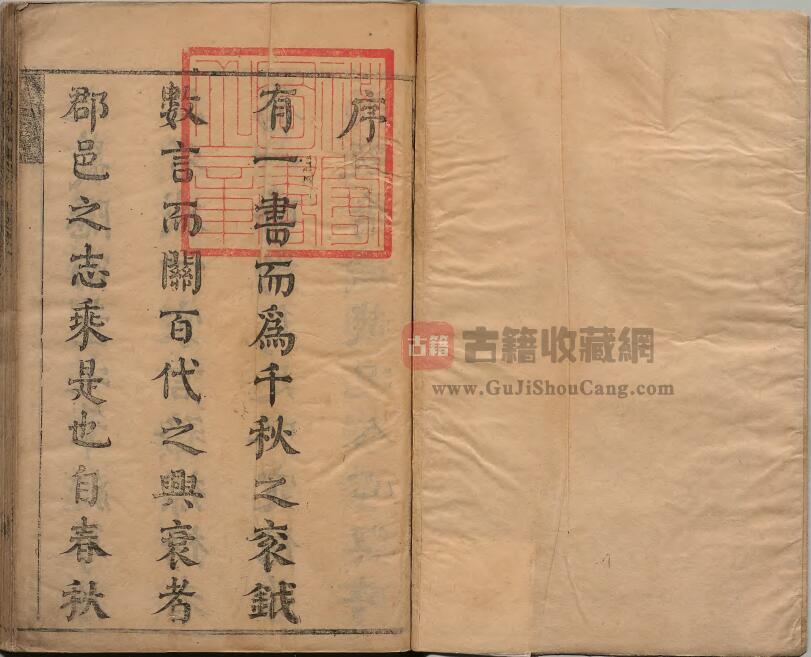 序
有一書而爲千秋之衮鉞
數言而關百代之興衰者
郡邑之志乘是也自春秋
古籍
古籍收藏網
www.GuJiShouCang.com